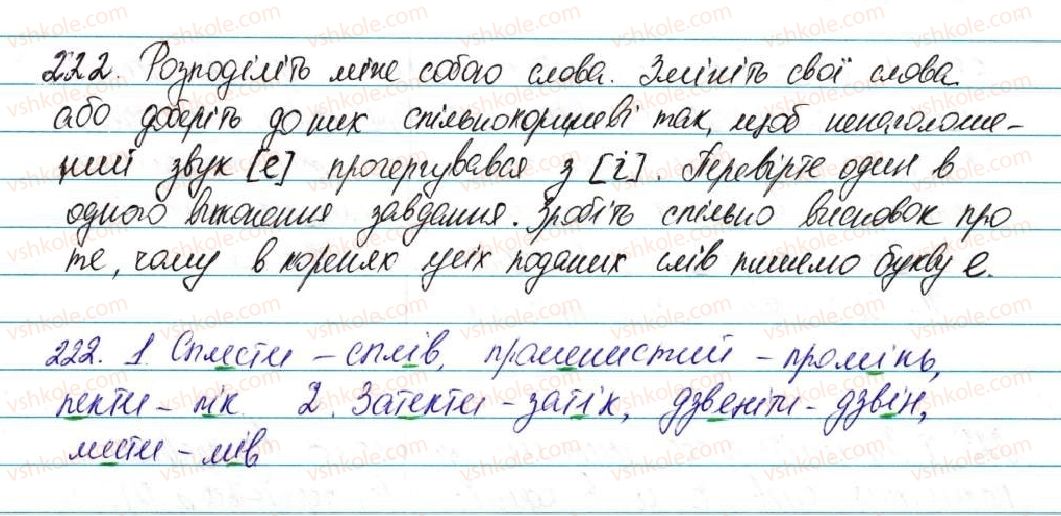 222. Розподіліть між собою слова. Змініть свої слова
або доберіть до них спільнокореневі так, щоб ненаголоше-
ний звук [е] прочергувався з [і]. Перевірте один в
одного виконання завдання. Зробіть спільно висновок про
те, чому в коренях усіх поданих слів пишемо букву е.
222. 1. Сплести - сплів, променистий - промінь,
пекти - пік 2. Затекти - затік, дзвеніти - дзвін,
мести - мів
vshkole.com